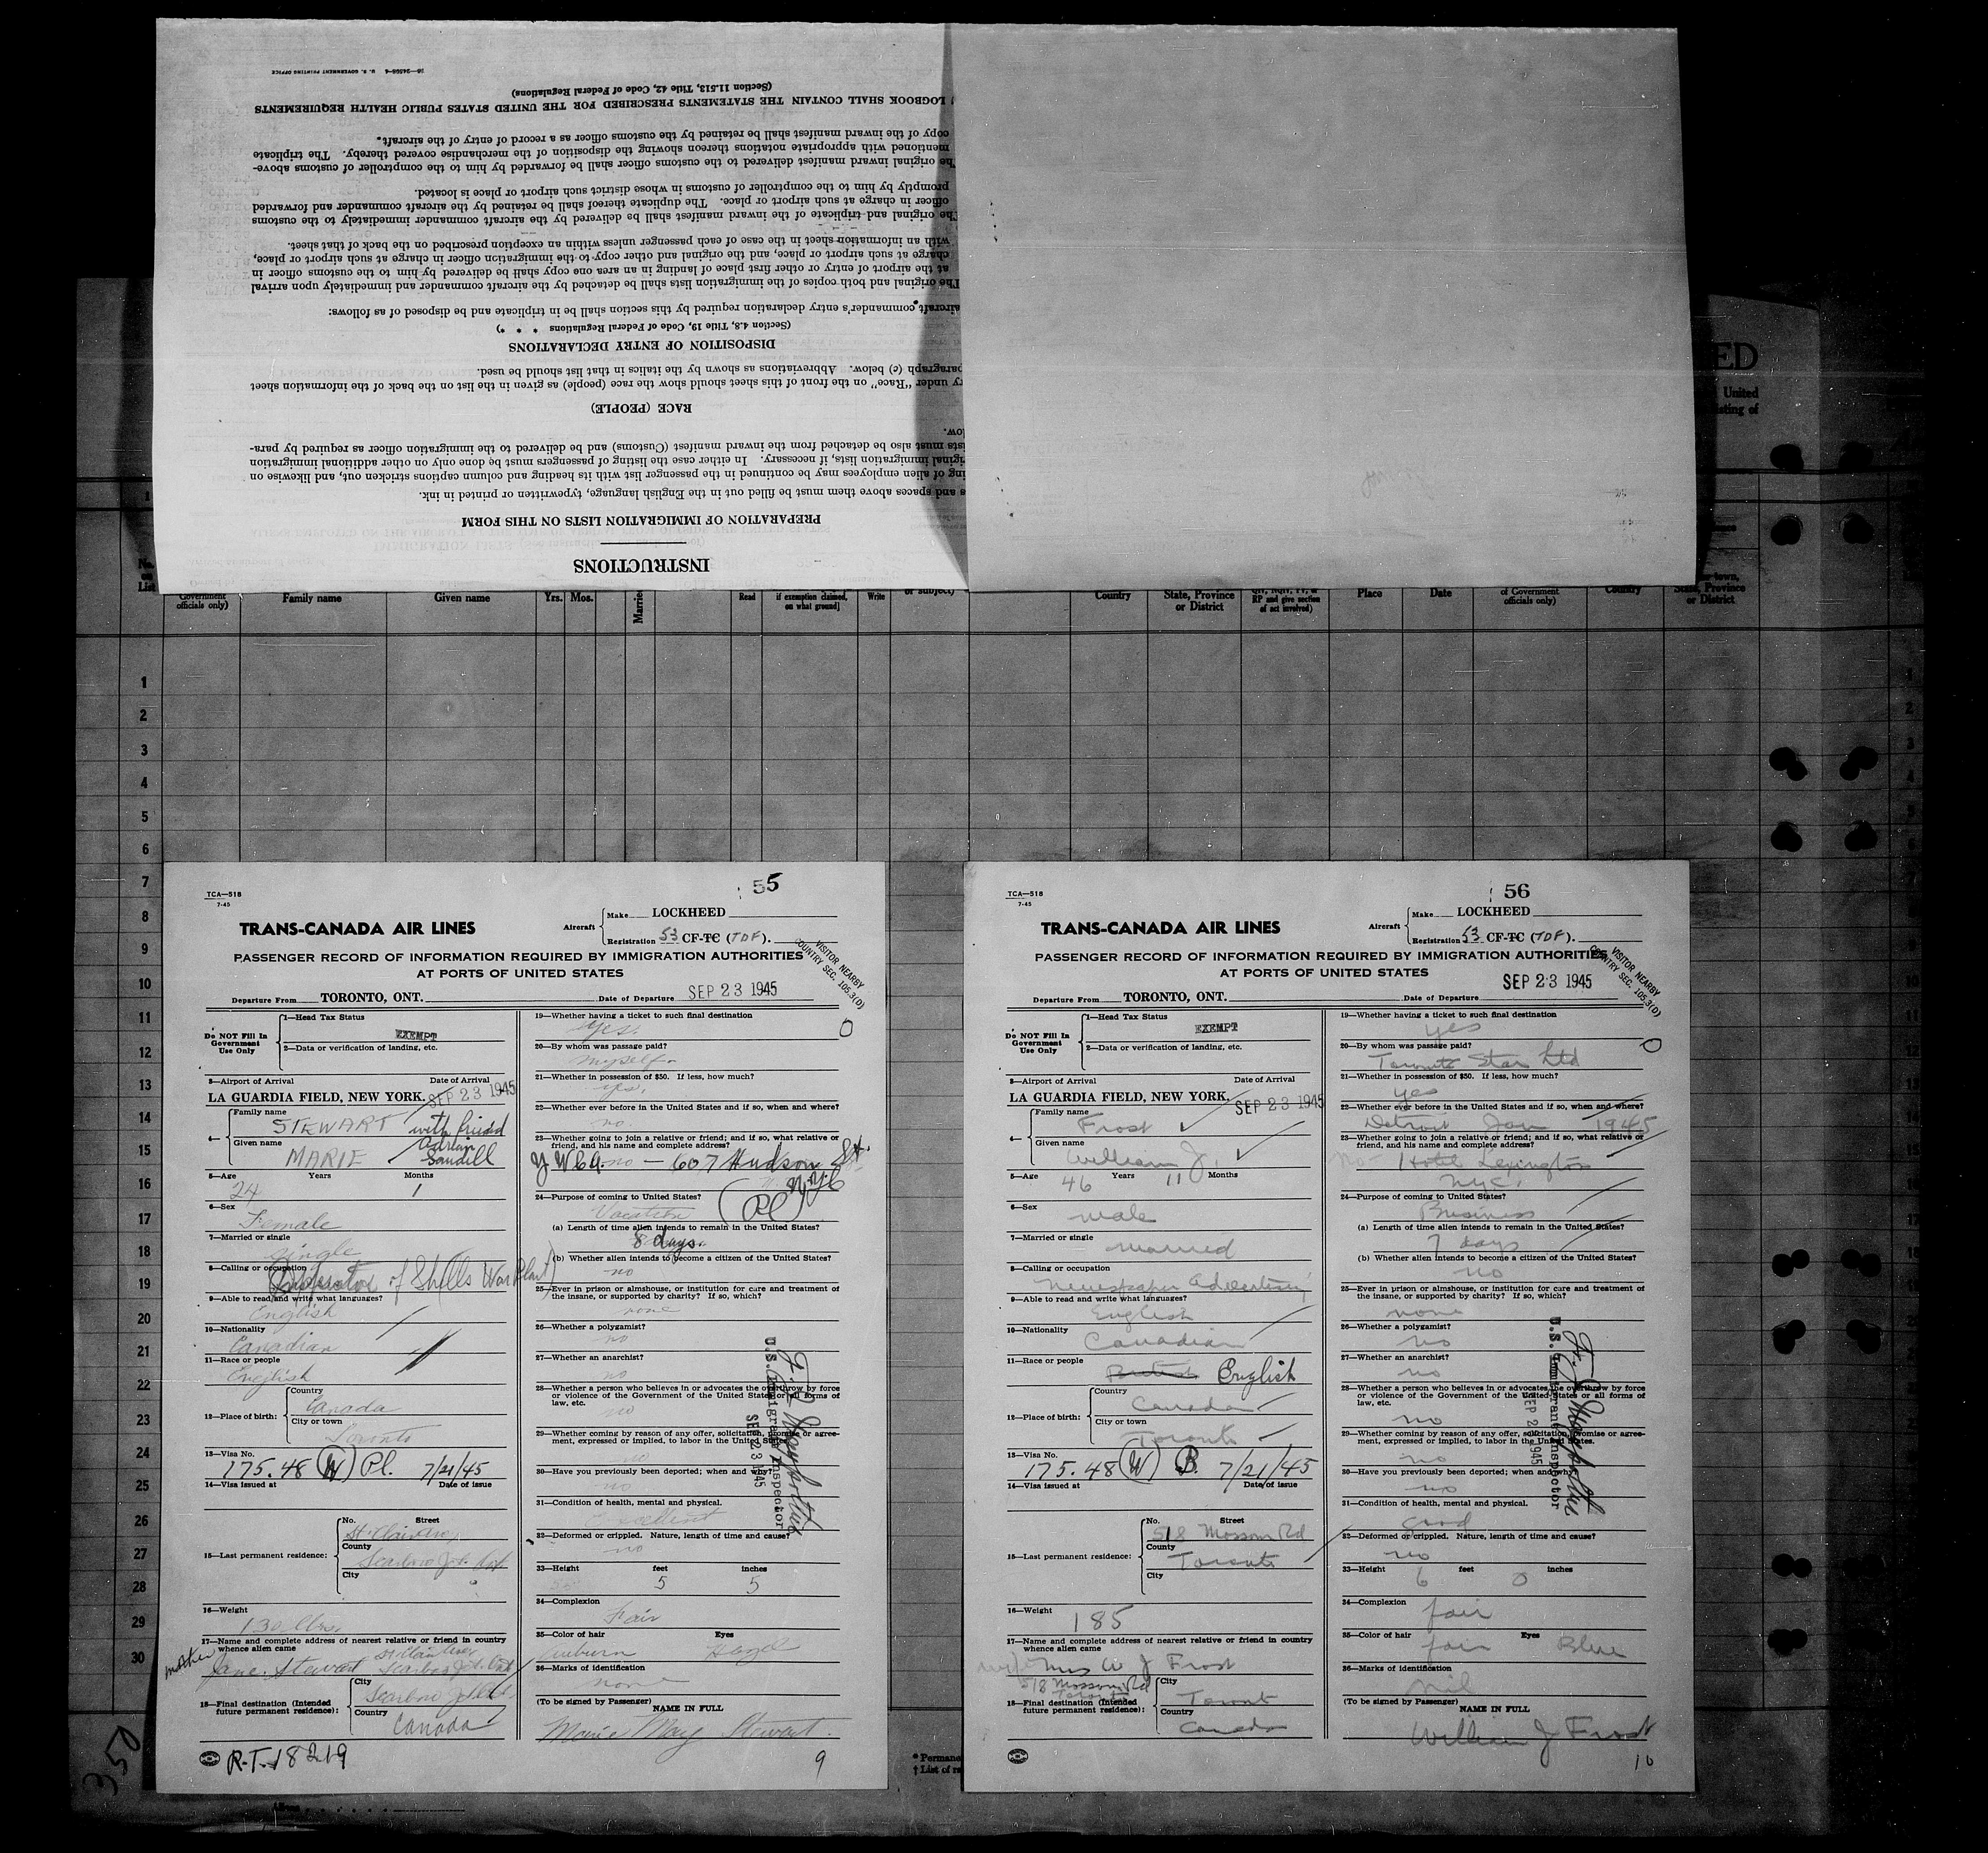 16—24506-4 U. S. GOVERNMENT PRINTING OFFICE
(Section 11.513, Title 42, Code of Federal Regulations)
LOGBOOK SHALL CONTAIN THE STATEMENTS PRESCRIBED FOR THE UNITED STATES PUBLIC HEALTH REQUIREMENTS
copy of the inward manifest shall be retained by the customs officer as a record of entry of the aircraft.
mentioned with appropriate notations thereon showing the disposition of the merchandise covered thereby. The triplicate
The original inward manifest delivered to the customs officer shall be forwarded by him to the comptroller of customs above-
promptly by him to the comptroller of customs in whose district such airport or place is located.
officer in charge at such airport or place. The duplicate thereof shall be retained by the aircraft commander and forwarded
The original and triplicate of the inward manifest shall be delivered by the aircraft commander immediately to the customs
with an information sheet in the case of each passenger unless within an exception prescribed on the back of that sheet.
charge at such airport or place, and the original and other copy to the immigration officer in charge at such airport or place,
at the airport of entry or other first place of landing in an area one copy shall be delivered by him to the customs officer in
The original and both copies of the immigration lists shall be detached by the aircraft commander and immediately upon arrival
aircraft commander's entry declaration required by this section shall be in triplicate and be disposed of as follows:
(Section 4.8, Title 19, Code of Federal Regulations * * *)
DISPOSITION OF ENTRY DECLARATIONS
paragraph (c) below. Abbreviations as shown by the italics in that list should be used.
ry under "Race" on the front of this sheet should show the race (people) as given in the list on the back of the information sheet
RACE (PEOPLE)
low.
ists must also be detached from the inward manifest (Customs) and be delivered to the immigration officer as required by para-
iginal immigration lists, if necessary. In either case the listing of passengers must be done only on other additional immigration
ing of alien employees may be continued in the passenger list with its heading and column captions stricken out, and likewise on
s and spaces above them must be filled out in the English language, typewritten or printed in ink.
PREPARATION OF IMMIGRATION LISTS ON THIS FORM
INSTRUCTIONS
ED
United
sting of
No. on List
Government officials only)
Family name
Given name
Yrs. Mos.
Read
if exemption claimed, on what ground]
Write
or subject)
Country
State, Province or District
RP and give section of act involved)
Place
Date
of Government officials only)
Country
State, Province or District
1
2
3
4
5
6
7
8
9
10
11
12
13
14
15
16
17
18
19
20
21
22
23
24
25
26
27
28
29
30
350
TCA—518
7-45
55
TRANS-CANADA AIR LINES
Aircraft
Make LOCKHEED
Registration 53 CF-TC (TDF).
PASSENGER RECORD OF INFORMATION REQUIRED BY IMMIGRATION AUTHORITIES
AT PORTS OF UNITED STATES
VISITOR NEARBY
COUNTRY SEC. 105.3(D)
Departure From TORONTO, ONT. Date of Departure SEP 23 1945
Do NOT Fill In Government Use Only
1—Head Tax Status
EXEMPT
2—Data or verification of landing, etc.
3—Airport of Arrival Date of Arrival
LA GUARDIA FIELD, NEW YORK. SEP 23 1945
4—
Family name
STEWART with friend
Given name
MARIE Adrian Sandill
5—Age Years Months
24 1
6—Sex
Female
7—Married or single
Single
8—Calling or occupation
Inspector of Shells War Plant)
9—Able to read and write what languages?
English
10—Nationality
Canadian
11—Race or people
English
12—Place of birth:
Country
Canada
City or town
Toronto
13—Visa No.
175.48 (W) Pl. 7/21/45
14—Visa issued at Date of issue
15—Last permanent residence:
No. Street
St Clair Ave
County
Scarboro Jct. Ont
City
16—Weight
130 lbs.
17—Name and complete address of nearest relative or friend in country whence alien came
mother Jane Stewart St Clair Ave Scarboro Jct. Ont
18—Final destination (Intended future permanent residence):
City
Scarboro Jct
Country
Canada
R.T. 18219
19—Whether having a ticket to such final destination
yes. 0
20—By whom was passage paid?
myself
21—Whether in possession of $50. If less, how much?
yes.
22—Whether ever before in the United States and if so, when and where?
no
23—Whether going to join a relative or friend; and if so, what relative or friend, and his name and complete address?
YWCA no — 607 Hudson St. N.Y.C
24—Purpose of coming to United States?
Vacation (Pl)
(a) Length of time alien intends to remain in the United States?
8 days.
(b) Whether alien intends to become a citizen of the United States?
no
25—Ever in prison or almshouse, or institution for care and treatment of the insane, or supported by charity? If so, which?
none
26—Whether a polygamist?
no
27—Whether an anarchist?
no
28—Whether a person who believes in or advocates the overthrow by force or violence of the Government of the United States or all forms of law, etc.
no
29—Whether coming by reason of any offer, solicitation, promise or agreement, expressed or implied, to labor in the United States.
no
30—Have you previously been deported; when and why?
no
31—Condition of health, mental and physical.
Excellent
32—Deformed or crippled. Nature, length of time and cause?
no
33—Height feet inches
5 5
34—Complexion
Fair
35—Color of hair Eyes
auburn Hazel
36—Marks of identification
none
(To be signed by Passenger) NAME IN FULL
Marie May Stewart.
9
U.S. Immigrant Inspector
SEP 23 1945
TCA—518
7-45
56
TRANS-CANADA AIR LINES
Aircraft
Make LOCKHEED
Registration 53 CF-TC (TDF).
PASSENGER RECORD OF INFORMATION REQUIRED BY IMMIGRATION AUTHORITIES
AT PORTS OF UNITED STATES
VISITOR NEARBY
COUNTRY SEC. 105.3(D)
Departure From TORONTO, ONT. Date of Departure SEP 23 1945
Do NOT Fill In Government Use Only
1—Head Tax Status
EXEMPT
2—Data or verification of landing, etc.
3—Airport of Arrival Date of Arrival
LA GUARDIA FIELD, NEW YORK. SEP 23 1945
4—
Family name
Frost
Given name
William J.
5—Age Years Months
46 11
6—Sex
male
7—Married or single
married
8—Calling or occupation
Newspaper Advertising
9—Able to read and write what languages?
English
10—Nationality
Canadian
11—Race or people
British English
12—Place of birth:
Country
Canada
City or town
Toronto
13—Visa No.
175.48 (W) B. 7/21/45
14—Visa issued at Date of issue
15—Last permanent residence:
No. Street
518 Mossom Rd
County
Toronto
City
16—Weight
185
17—Name and complete address of nearest relative or friend in country whence alien came
wife Mrs W J Frost
518 Mossom Rd
Toronto
18—Final destination (Intended future permanent residence):
City
Toronto
Country
Canada
19—Whether having a ticket to such final destination
yes 0
20—By whom was passage paid?
Toronto Star Ltd
21—Whether in possession of $50. If less, how much?
yes
22—Whether ever before in the United States and if so, when and where?
Detroit Jan 1945
23—Whether going to join a relative or friend; and if so, what relative or friend, and his name and complete address?
no Hotel Lexington
NYC.
24—Purpose of coming to United States?
Business
(a) Length of time alien intends to remain in the United States?
7 days
(b) Whether alien intends to become a citizen of the United States?
no
25—Ever in prison or almshouse, or institution for care and treatment of the insane, or supported by charity? If so, which?
none
26—Whether a polygamist?
no
27—Whether an anarchist?
no
28—Whether a person who believes in or advocates the overthrow by force or violence of the Government of the United States or all forms of law, etc.
no
29—Whether coming by reason of any offer, solicitation, promise or agreement, expressed or implied, to labor in the United States.
no
30—Have you previously been deported; when and why?
no
31—Condition of health, mental and physical.
good
32—Deformed or crippled. Nature, length of time and cause?
no
33—Height feet inches
6 0
34—Complexion
fair
35—Color of hair Eyes
fair Blue
36—Marks of identification
nil
(To be signed by Passenger) NAME IN FULL
William J Frost
10
U.S. Immigrant Inspector
SEP 23 1945
* Permane
† List of ra